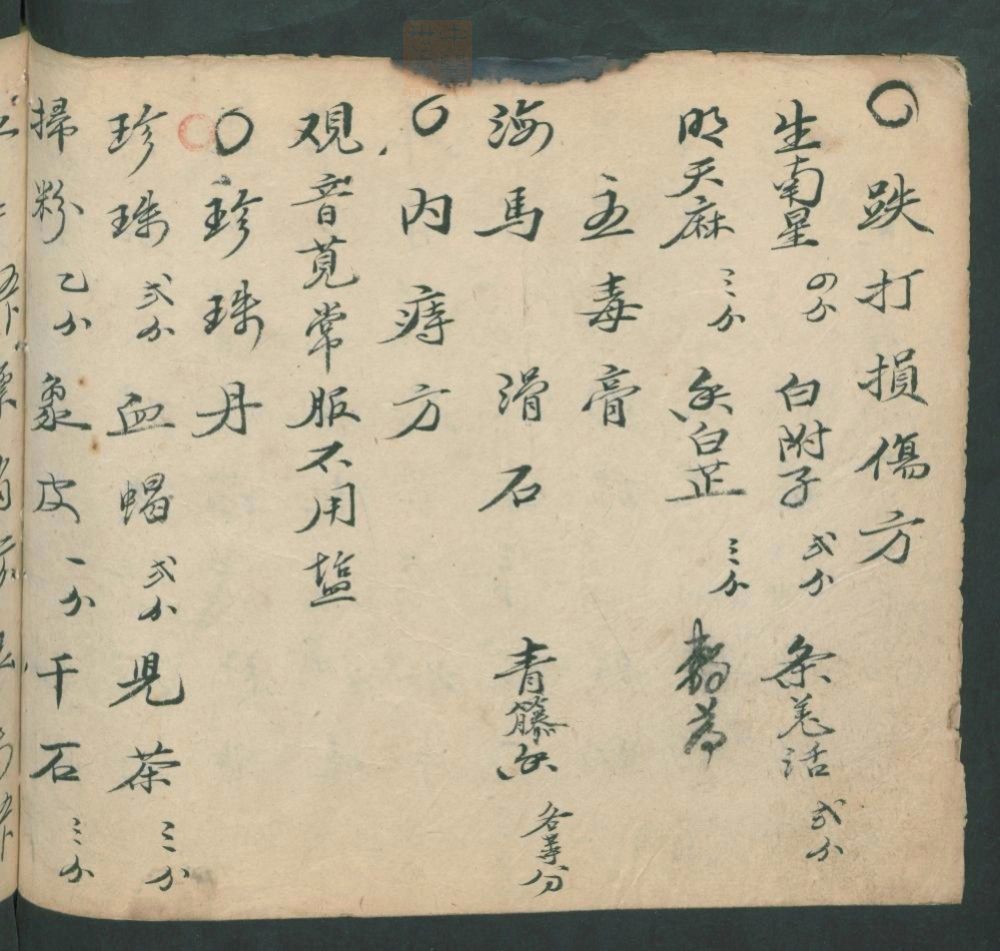 跌打損傷方
生南星 白附子 弍分 条羌活 弍分
明天麻 三分 白芷 三分
五毒膏
海馬 滑石 青籐 各等分
內痔方
观音莧常服不用塩
珍珠丹
珍珠 弍分 血蝎 弍分 児茶 三分
掃粉 乙分 象皮 一分 干石 三分